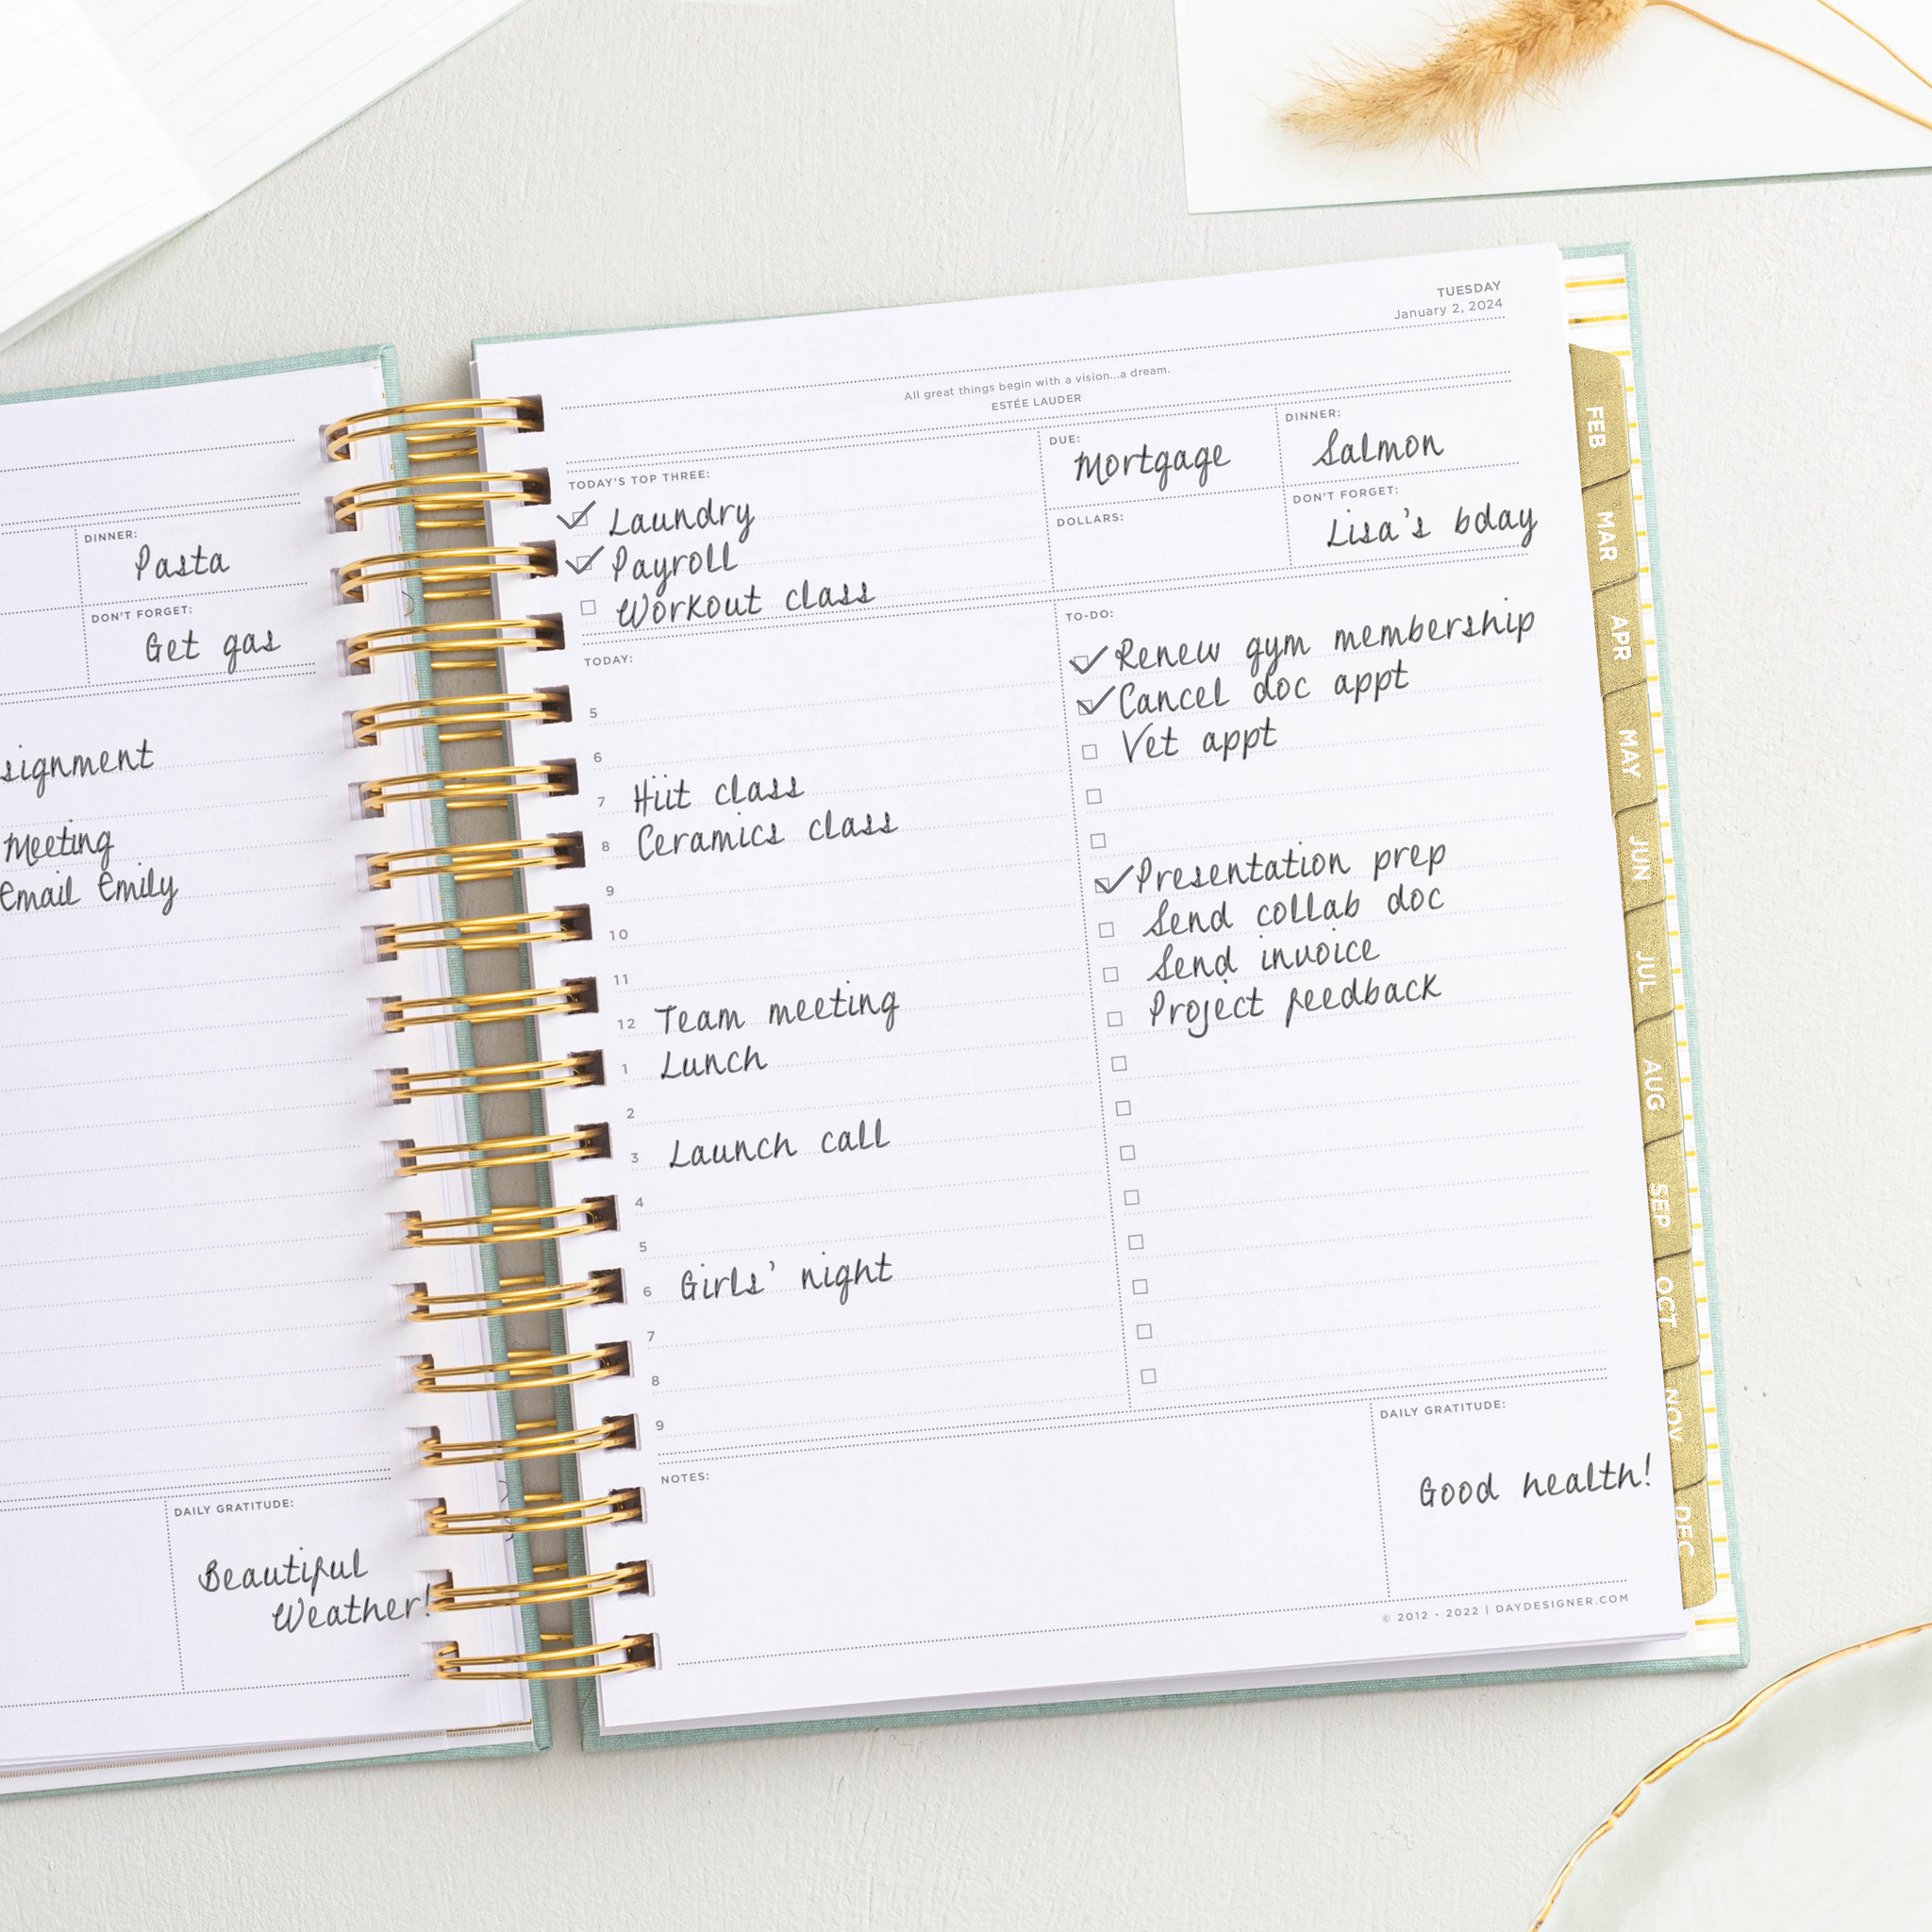 DINNER:
Pasta
DON'T FORGET:
Get gas
signment
Meeting
Email Emily
DAILY GRATITUDE:
Beautiful
Weather!
TUESDAY
January 2, 2024
All great things begin with a vision...a dream.
ESTÉE LAUDER
TODAY'S TOP THREE:
Laundry
Payroll
Workout class
DUE:
Mortgage
DINNER:
Salmon
DOLLARS:
DON'T FORGET:
Lisa's bday
TODAY:
5
6
7 Hiit class
8 Ceramics class
9
10
11
12 Team meeting
1 Lunch
2
3 Launch call
4
5
6 Girls' night
7
8
9
TO-DO:
Renew gym membership
Cancel doc appt
Vet appt
Presentation prep
Send collab doc
Send invoice
Project feedback
NOTES:
DAILY GRATITUDE:
Good health!
© 2012 - 2022 | DAYDESIGNER.COM
FEB
MAR
APR
MAY
JUN
JUL
AUG
SEP
OCT
NOV
DEC